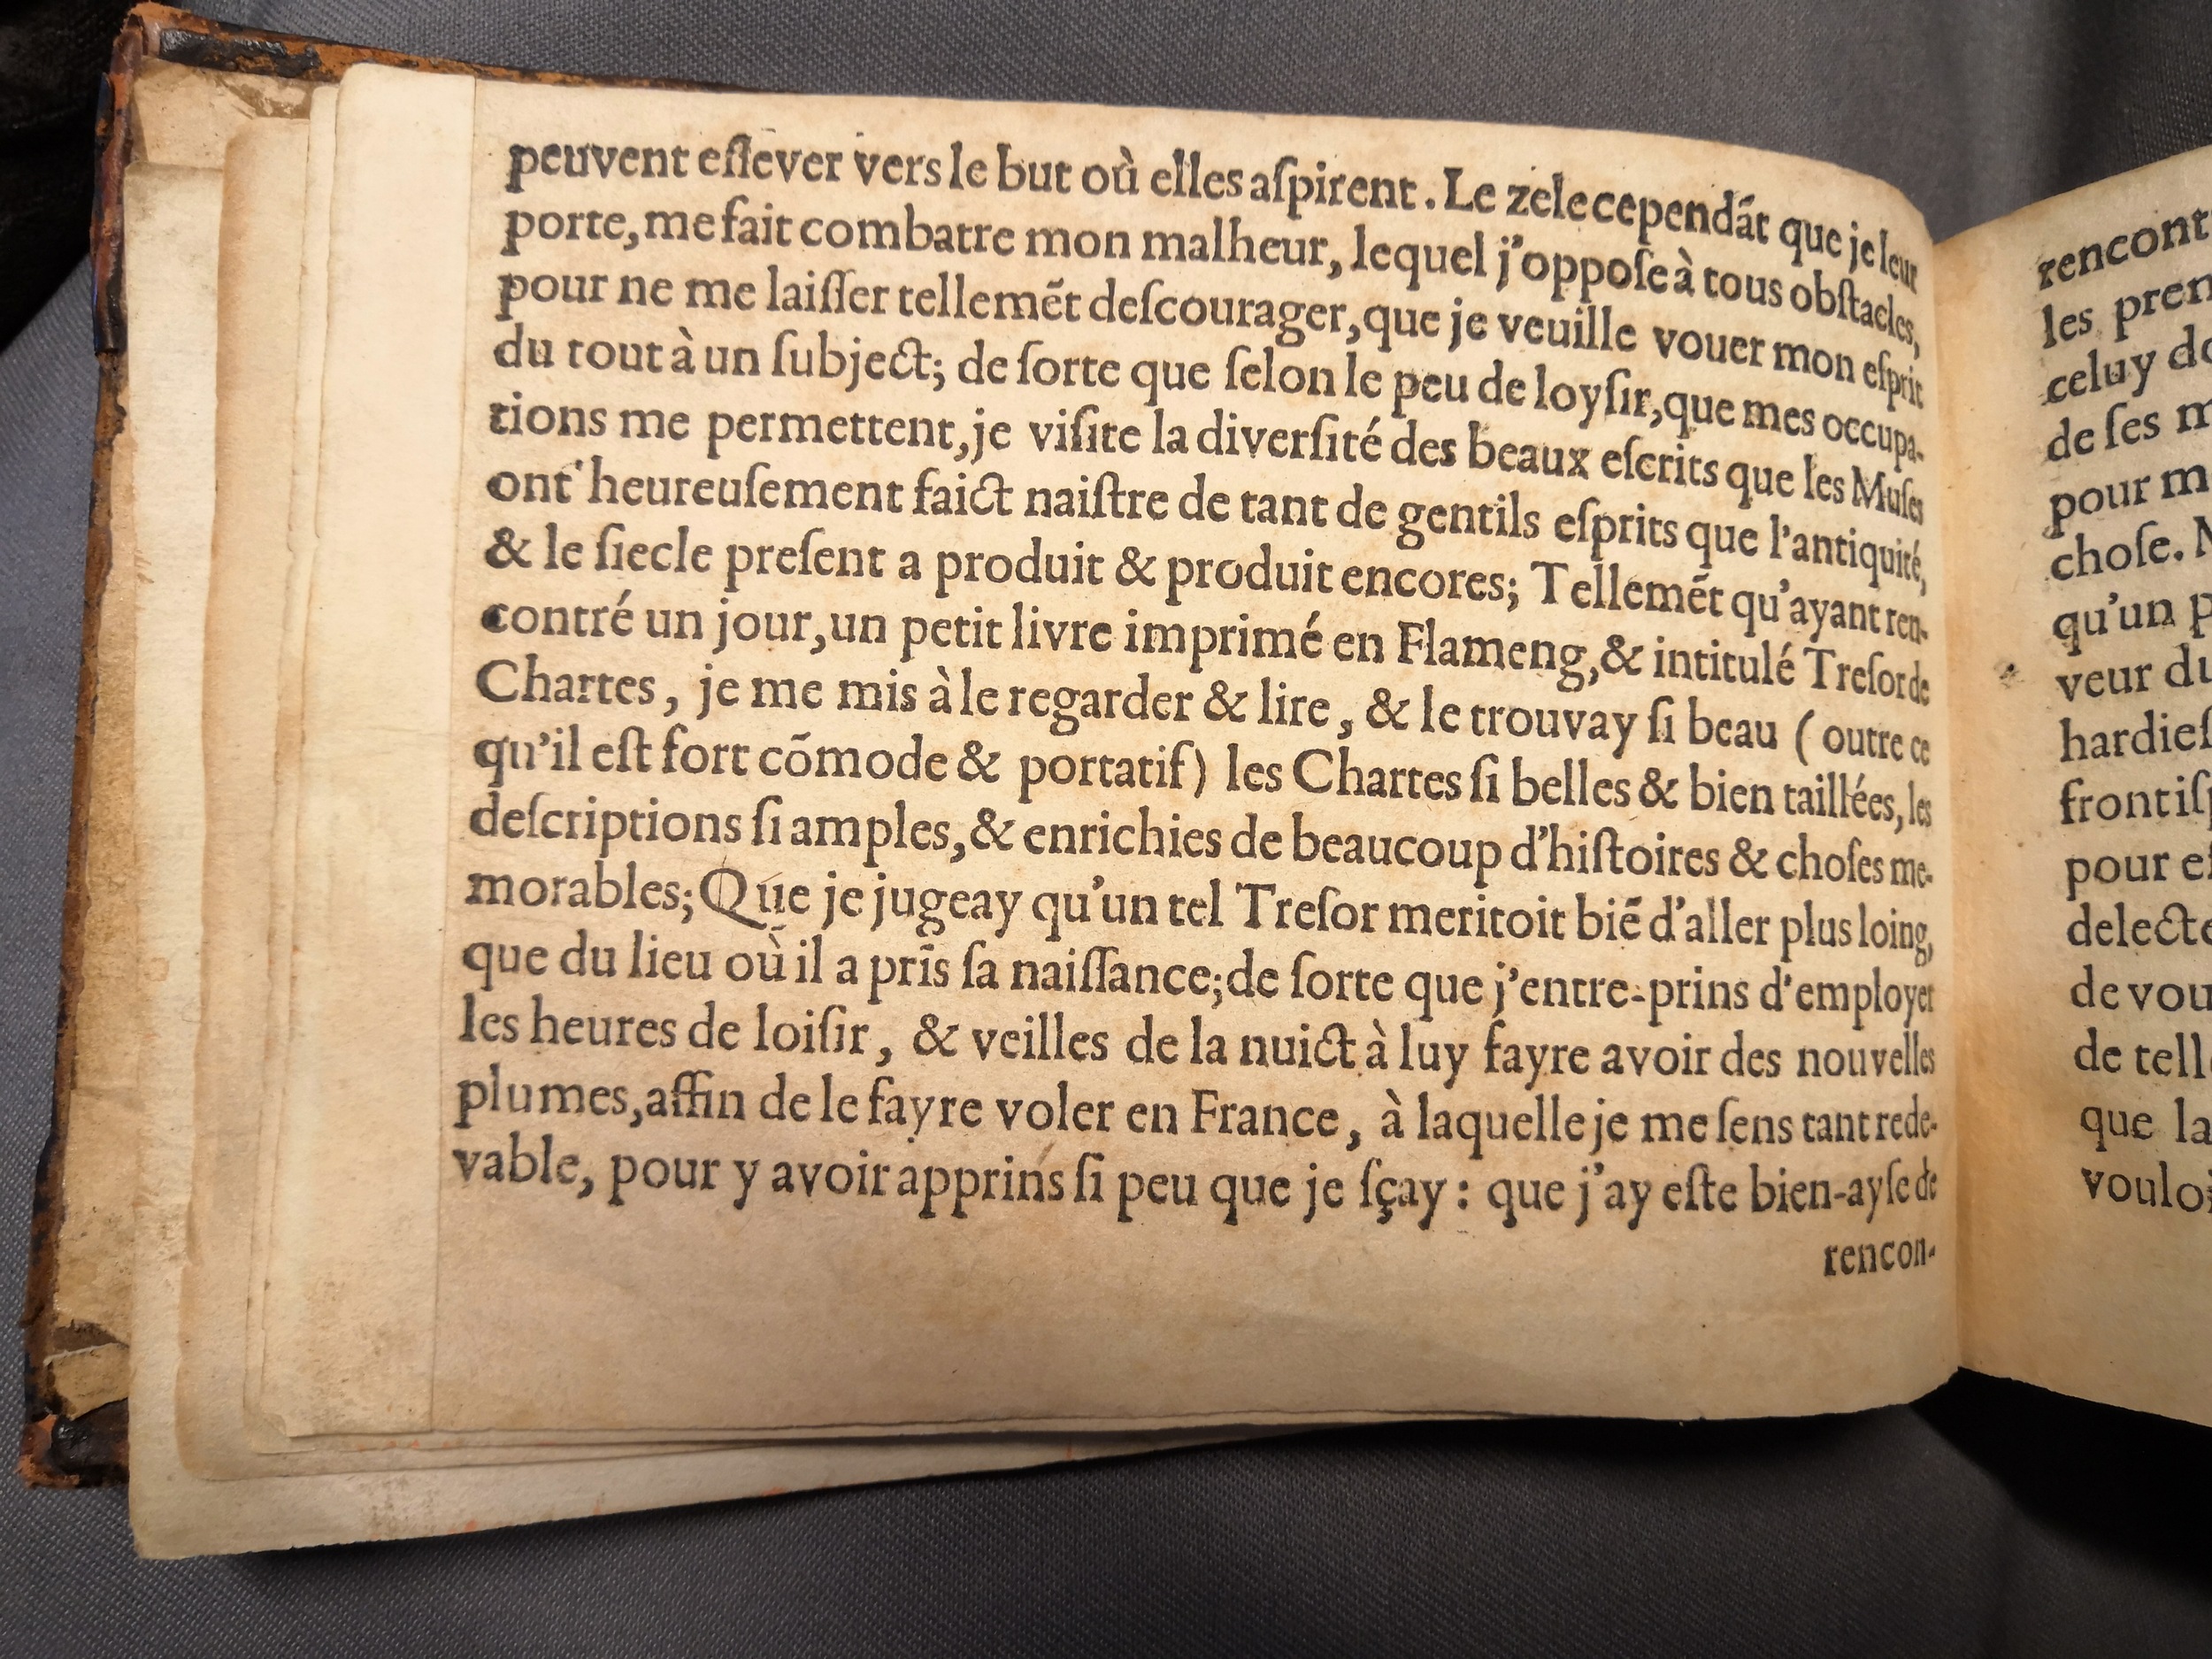 peuvent eſlever vers le but où elles aſpirent. Le zele cependãt que je leur
porte, me fait combatre mon malheur, lequel j'oppoſe à tous obſtacles,
pour ne me laiſſer tellemẽt deſcourager, que je veuille vouer mon eſprit
du tout à un ſubject; de ſorte que ſelon le peu de loyſir, que mes occupa-
tions me permettent, je viſite la diverſité des beaux eſcrits que les Muſes
ont heureuſement faict naiſtre de tant de gentils eſprits que l'antiquité,
& le ſiecle preſent a produit & produit encores; Tellemẽt qu'ayant ren-
contré un jour, un petit livre imprimé en Flameng, & intitulé Treſor de
Chartes, je me mis à le regarder & lire, & le trouvay ſi beau (outre ce
qu'il eſt fort cõmode & portatif) les Chartes ſi belles & bien taillées, les
deſcriptions ſi amples, & enrichies de beaucoup d'hiſtoires & choſes me-
morables; Que je jugeay qu'un tel Treſor meritoit biẽ d'aller plus loing,
que du lieu où il a pris ſa naiſſance; de ſorte que j'entre-prins d'employer
les heures de loiſir, & veilles de la nuict à luy fayre avoir des nouvelles
plumes, affin de le fayre voler en France, à laquelle je me ſens tant rede-
vable, pour y avoir apprins ſi peu que je ſçay: que j'ay eſte bien-ayſe de
rencon-
rencont
les pren
celuy
de ſes
pour
choſe.
qu'un
veur
hardieſ
frontiſp
pour
delecte
de vou
de tell
que la
vouloi